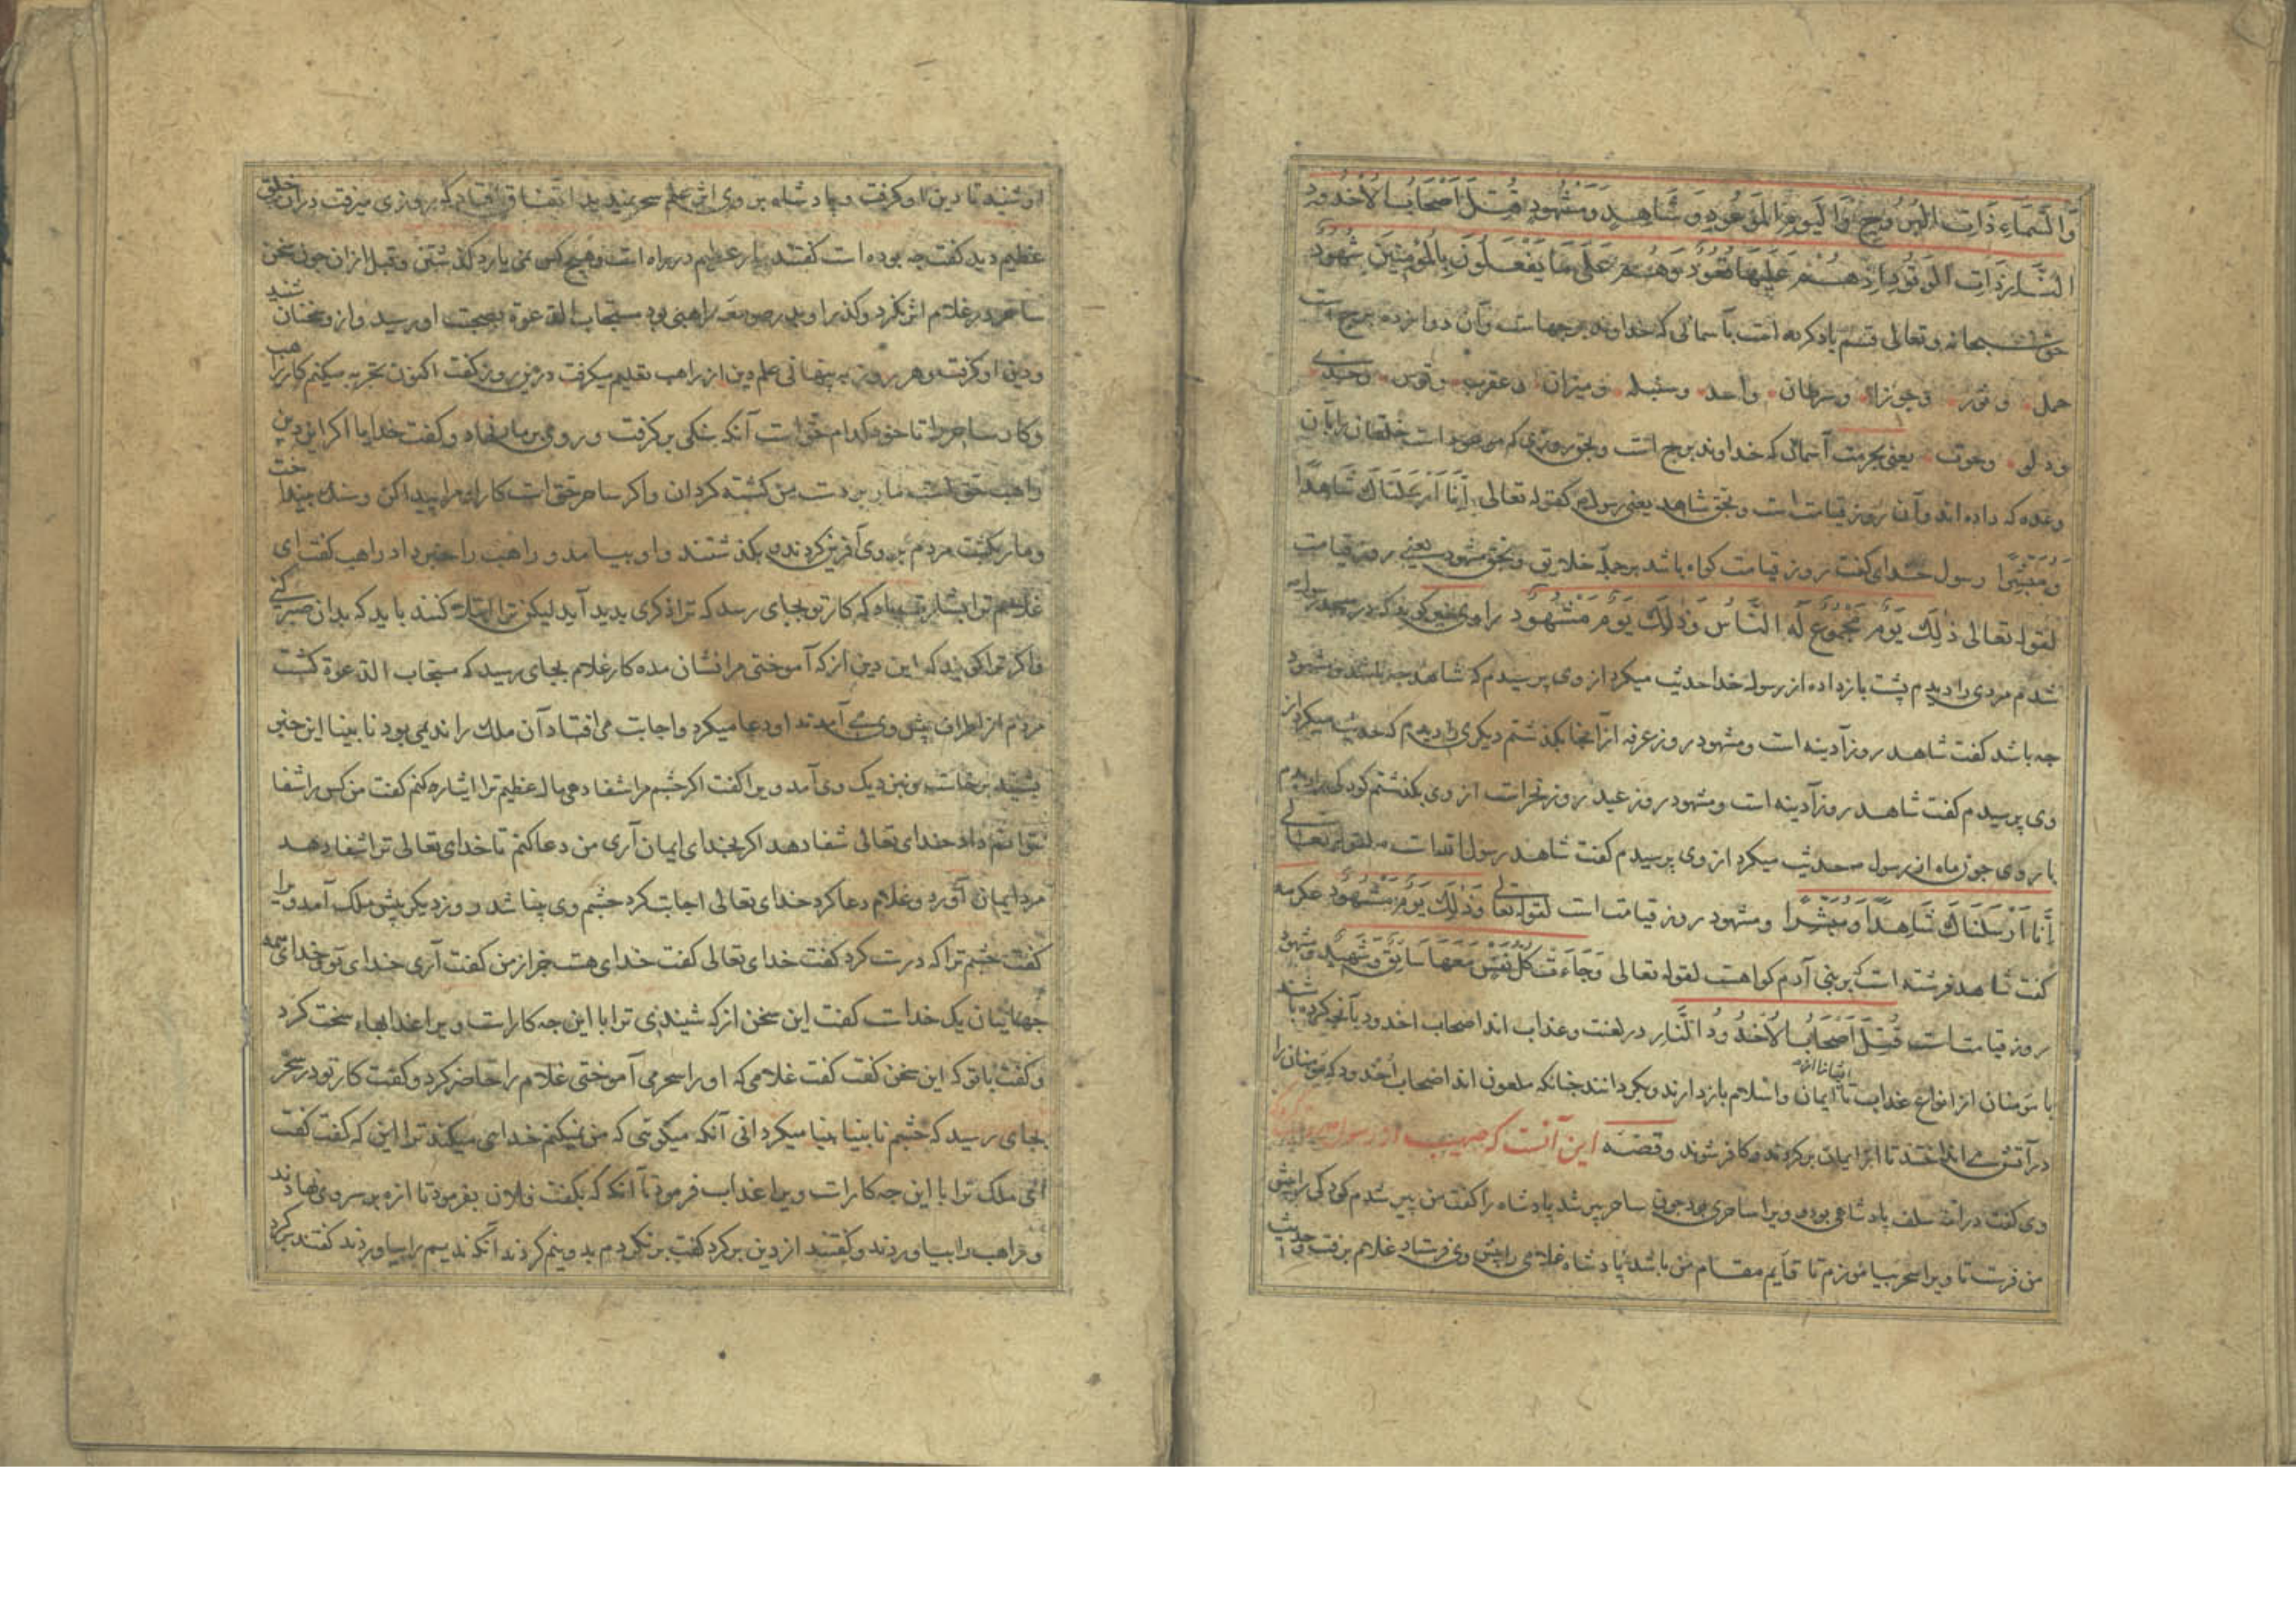 وَالسَّمَاءِ ذَاتِ الْبُرُوجِ وَالْيَوْمِ الْمَوْعُودِ وَشَاهِدٍ وَمَشْهُودٍ قُتِلَ اَصْحَابُ الْاُخْدُودِ
النَّارِ ذَاتِ الْوَقُودِ اِذْ هُمْ عَلَيْهَا قُعُودٌ وَهُمْ عَلَى مَا يَفْعَلُونَ بِالْمُؤْمِنِينَ شُهُودٌ
حق سبحانه و تعالی قسم یاد کرده است بآسمانی که خداوند برجهاست وآن دوازده برج است
حمل و ثور و جوزا و سرطان و اسد و سنبله و میزان و عقرب و قوس و جدی
و دلو و حوت یعنی بحرمت آسمان که خداوند برج است و بحق روزی که موعود است خلقان را بآن
وعده که داده اند وآن روز قیامت است و بحق شاهد یعنی رسول کقوله تعالی اِنَّا اَرْسَلْنَاكَ شَاهِدًا
وَمُبَشِّرًا رسول خدای گفت روز قیامت گواه باشد بر جمله خلایق و بحق مشهود یعنی روز قیامت
لقوله تعالی ذٰلِكَ يَوْمٌ مَجْمُوعٌ لَهُ النَّاسُ وَذٰلِكَ يَوْمٌ مَشْهُودٌ راوی چنین گوید که در مسجد رسول
شدم مردی را دیدم پشت باز داده از رسول خدا حدیث میکرد از وی پرسیدم که شاهد چه باشد و مشهود
چه باشد گفت شاهد روز آدینه است و مشهود روز عرفه از آنجا بگذشتم دیگری را دیدم که حدیث میکرد از
وی پرسیدم گفت شاهد روز آدینه است و مشهود روز عید روز نحر است از وی بگذشتم کودکی را دیدم
با روی چون ماه از رسول حدیث میکرد از وی پرسیدم گفت شاهد رسول است لقوله تعالی
اِنَّا اَرْسَلْنَاكَ شَاهِدًا وَمُبَشِّرًا و مشهود روز قیامت است لقوله تعالی وَذٰلِكَ يَوْمٌ مَشْهُودٌ عکرمه
گفت شاهد فرشته است که بر بنی آدم گواهست لقوله تعالی وَجَاءَتْ كُلُّ نَفْسٍ مَعَهَا سَائِقٌ وَشَهِيدٌ و مشهود
روز قیامت است قُتِلَ اَصْحَابُ الْاُخْدُودِ النَّارِ در لعنت و عذاب اند اصحاب اخدود بآنچه کرده باشند
با مومنان از انواع عذاب تا ایشانرا از ایمان و اسلام باز دارند و بگردانند چنانکه ملعون اند اصحاب اخدود که مومنان را
در آتش می انداختند تا از ایمان برگردند و کافر شوند و قصه این آنست که صهیب از رسول
وی گفت در امت سلف پادشاهی بود و ویرا ساحری بود چون ساحر پیر شد پادشاه را گفت من پیر شدم کودکی را پیش
من فرست تا ویرا سحر بیاموزم تا قایم مقام من باشد پادشاه غلامی را پیش وی فرستاد غلام برفت و حدیث
او شنید تا دین او گرفت و پادشاه بر وی اثر علم سحر ندید اتفاق افتاد که روزی میرفت در آن خلق
عظیم دید گفت چه بوده است گفتند مار عظیم در راه است و هیچ کس نمی یارد گذشتن و قبل از آن چون سخن
ساحر در غلام اثر نکرد و گذر او بر صومعه راهبی بود مستجاب الدعوة بصحبت او رسید و از و سخنان شنید
و دین او گرفت و هر روز به پنهانی علم دین از راهب تعلیم میگرفت درین روز گفت اکنون تجربه میکنم کار راهب
و کار ساحر را تا خود کدام حق است آنکه سنگی برگرفت و روی بر مار نهاد و گفت خدایا اگر این دین
راهب حق است مار بر دست من کشته گردان و اگر ساحر حق است کار او مرا پیدا کن و سنگ بینداخت
و مار بکشت مردم بر وی آفرین کردند و بگذشتند و او بیامد و راهب را خبر داد راهب گفت ای
غلام ترا بشارت باد که کار تو بجای رسد که ترا ذکری پدید آید لیکن ترا ابتلا کنند باید که بدان صبر کنی
و اگر ترا گویند که این دین از که آموختی مرا نشان مده کار غلام بجای رسید که مستجاب الدعوة گشت
مردم از اطراف پیش وی می آمدند او دعا میکرد و اجابت می افتاد آن ملک را ندیمی بود نابینا این خبر
بشنید برخاست و نزدیک وی آمد و یرا گفت اگر چشم مرا شفا دهی مال عظیم ترا ایثار کنم گفت من کس را شفا
نتوانم داد خدای تعالی شفا دهد اگر بخدای ایمان آری من دعا کنم تا خدای تعالی ترا شفا دهد
مرد ایمان آورد و غلام دعا کرد خدای تعالی اجابت کرد چشم وی بینا شد روز دیگر پیش ملک آمد ویرا
گفت چشم ترا که درست کرد گفت خدای تعالی گفت خدای هست جز از من گفت آری خدای تو و خدای همه
جهانیان یک خداست گفت این سخن از که شنیدی ترا با این چه کار است ویرا عذابهاء سخت کرد
و گفت باتو که این سخن گفت گفت غلامی که او را سحر می آموختی غلام را حاضر کرد و گفت کار تو در سحر
بجای رسید که چشم نابینا بینا میگردانی آنکه میگوئی که من نمیکنم خدای میکند ترا این که گفت گفت
ای ملک ترا با این چه کار است ویرا عذاب فرمود تا آنکه که بگفت فلان بفرمود تا ازه بر سر وی نهادند
و راهب را بیاوردند و گفتند از دین برگرد گفت برنگردم بدو نیم کردند آنگه ندیم را بیاوردند گفتند برگرد